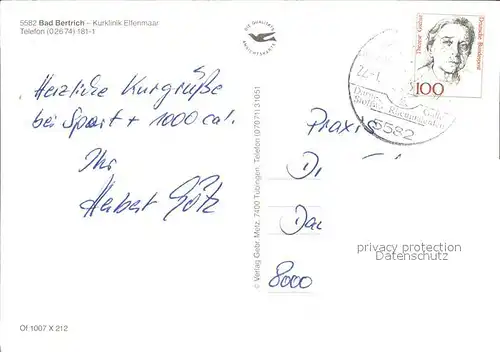 5582 Bad Bertrich – Kurklinik Elfenmaar
Telefon (0 26 74) 181-1
DIE QUALITÄTS
ANSICHTSKARTE
Therese Giehse
Deutsche Bundespost
100
22.-1.
5582
Herzliche Kurgrüße
bei Sport + 1000 cal.
Ihr
Herbert Götz
© Verlag Gebr. Metz, 7400 Tübingen, Telefon (0 70 71) 31051
Praxis
D
Da
8000
privacy protection
Datenschutz
Of 1007 X 212